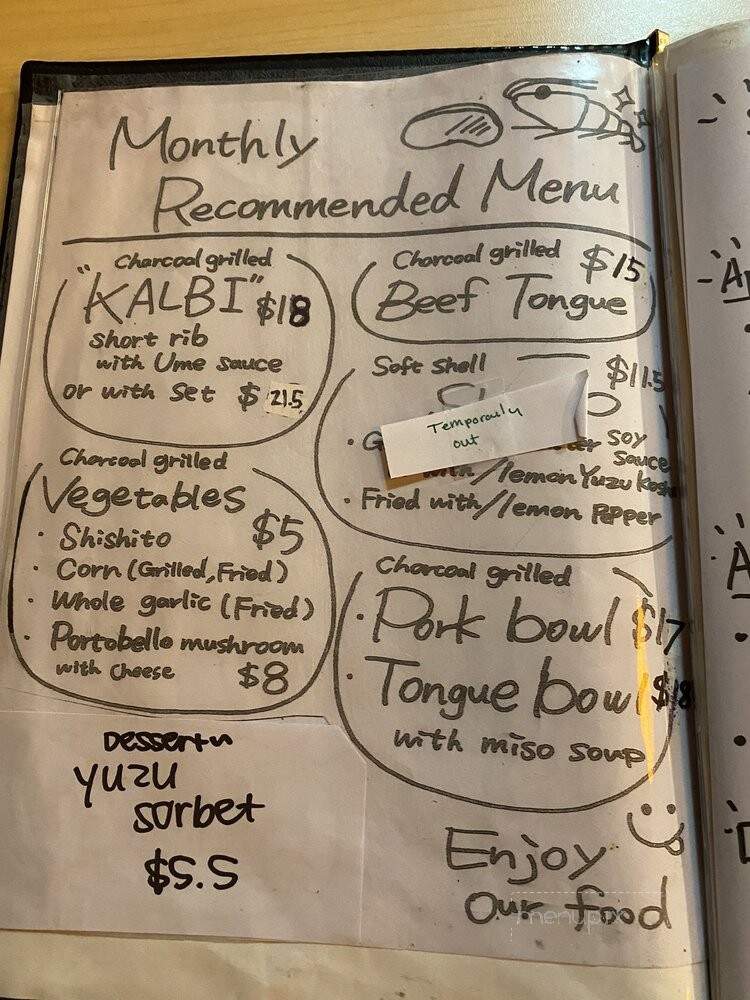 Monthly
Recommended Menu
Charcoal grilled
"KALBI" $18
short rib
with Ume sauce
or with set $ 21.5
Charcoal grilled
Vegetables
· Shishito $5
· Corn (Grilled, Fried)
· Whole garlic (Fried)
· Portobello mushroom
with cheese $8
Dessert
YUZU
sorbet
$5.5
Charcoal grilled $15
Beef Tongue
Soft shell $11.5
Temporaly
out
Soy
Sauce
with/lemon Yuzu
· Fried with/lemon Pepper
Charcoal grilled
· Pork bowl $17
· Tongue bowl $18
with miso soup
Enjoy
our food
menupix